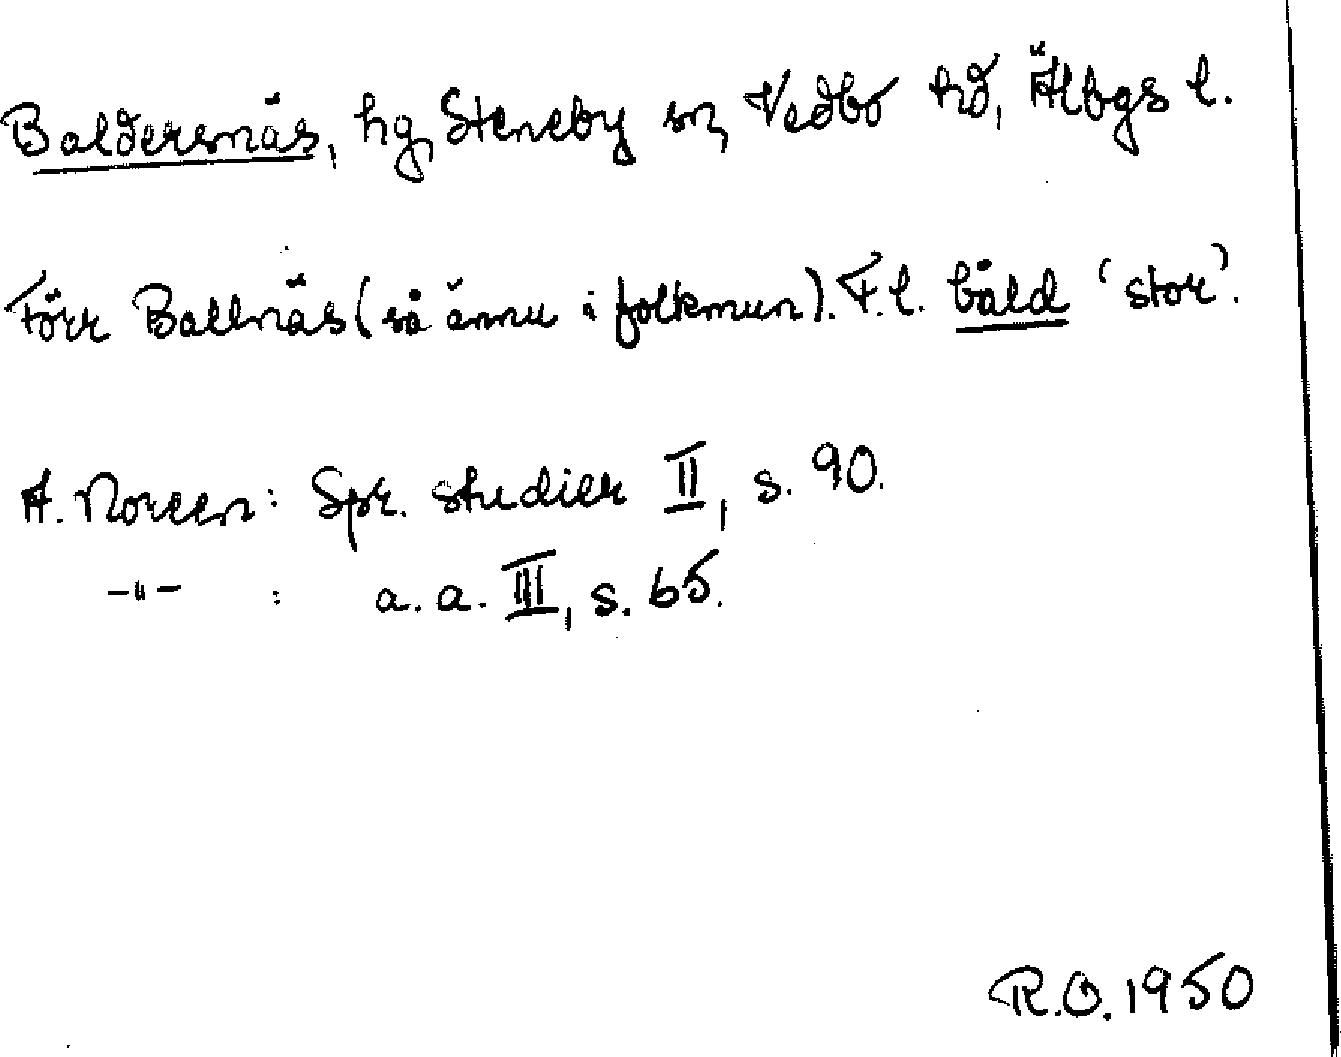 Baldersnäs, hg, Steneby sn, Vedbo hd, Älbgs l.
Förr Ballnäs (så ännu i folkmun). F.l. båld 'stor'.
A. Noreen: Spr. studier II, s. 90.
-"- : a. a. III, s. 65.
R.O. 1950